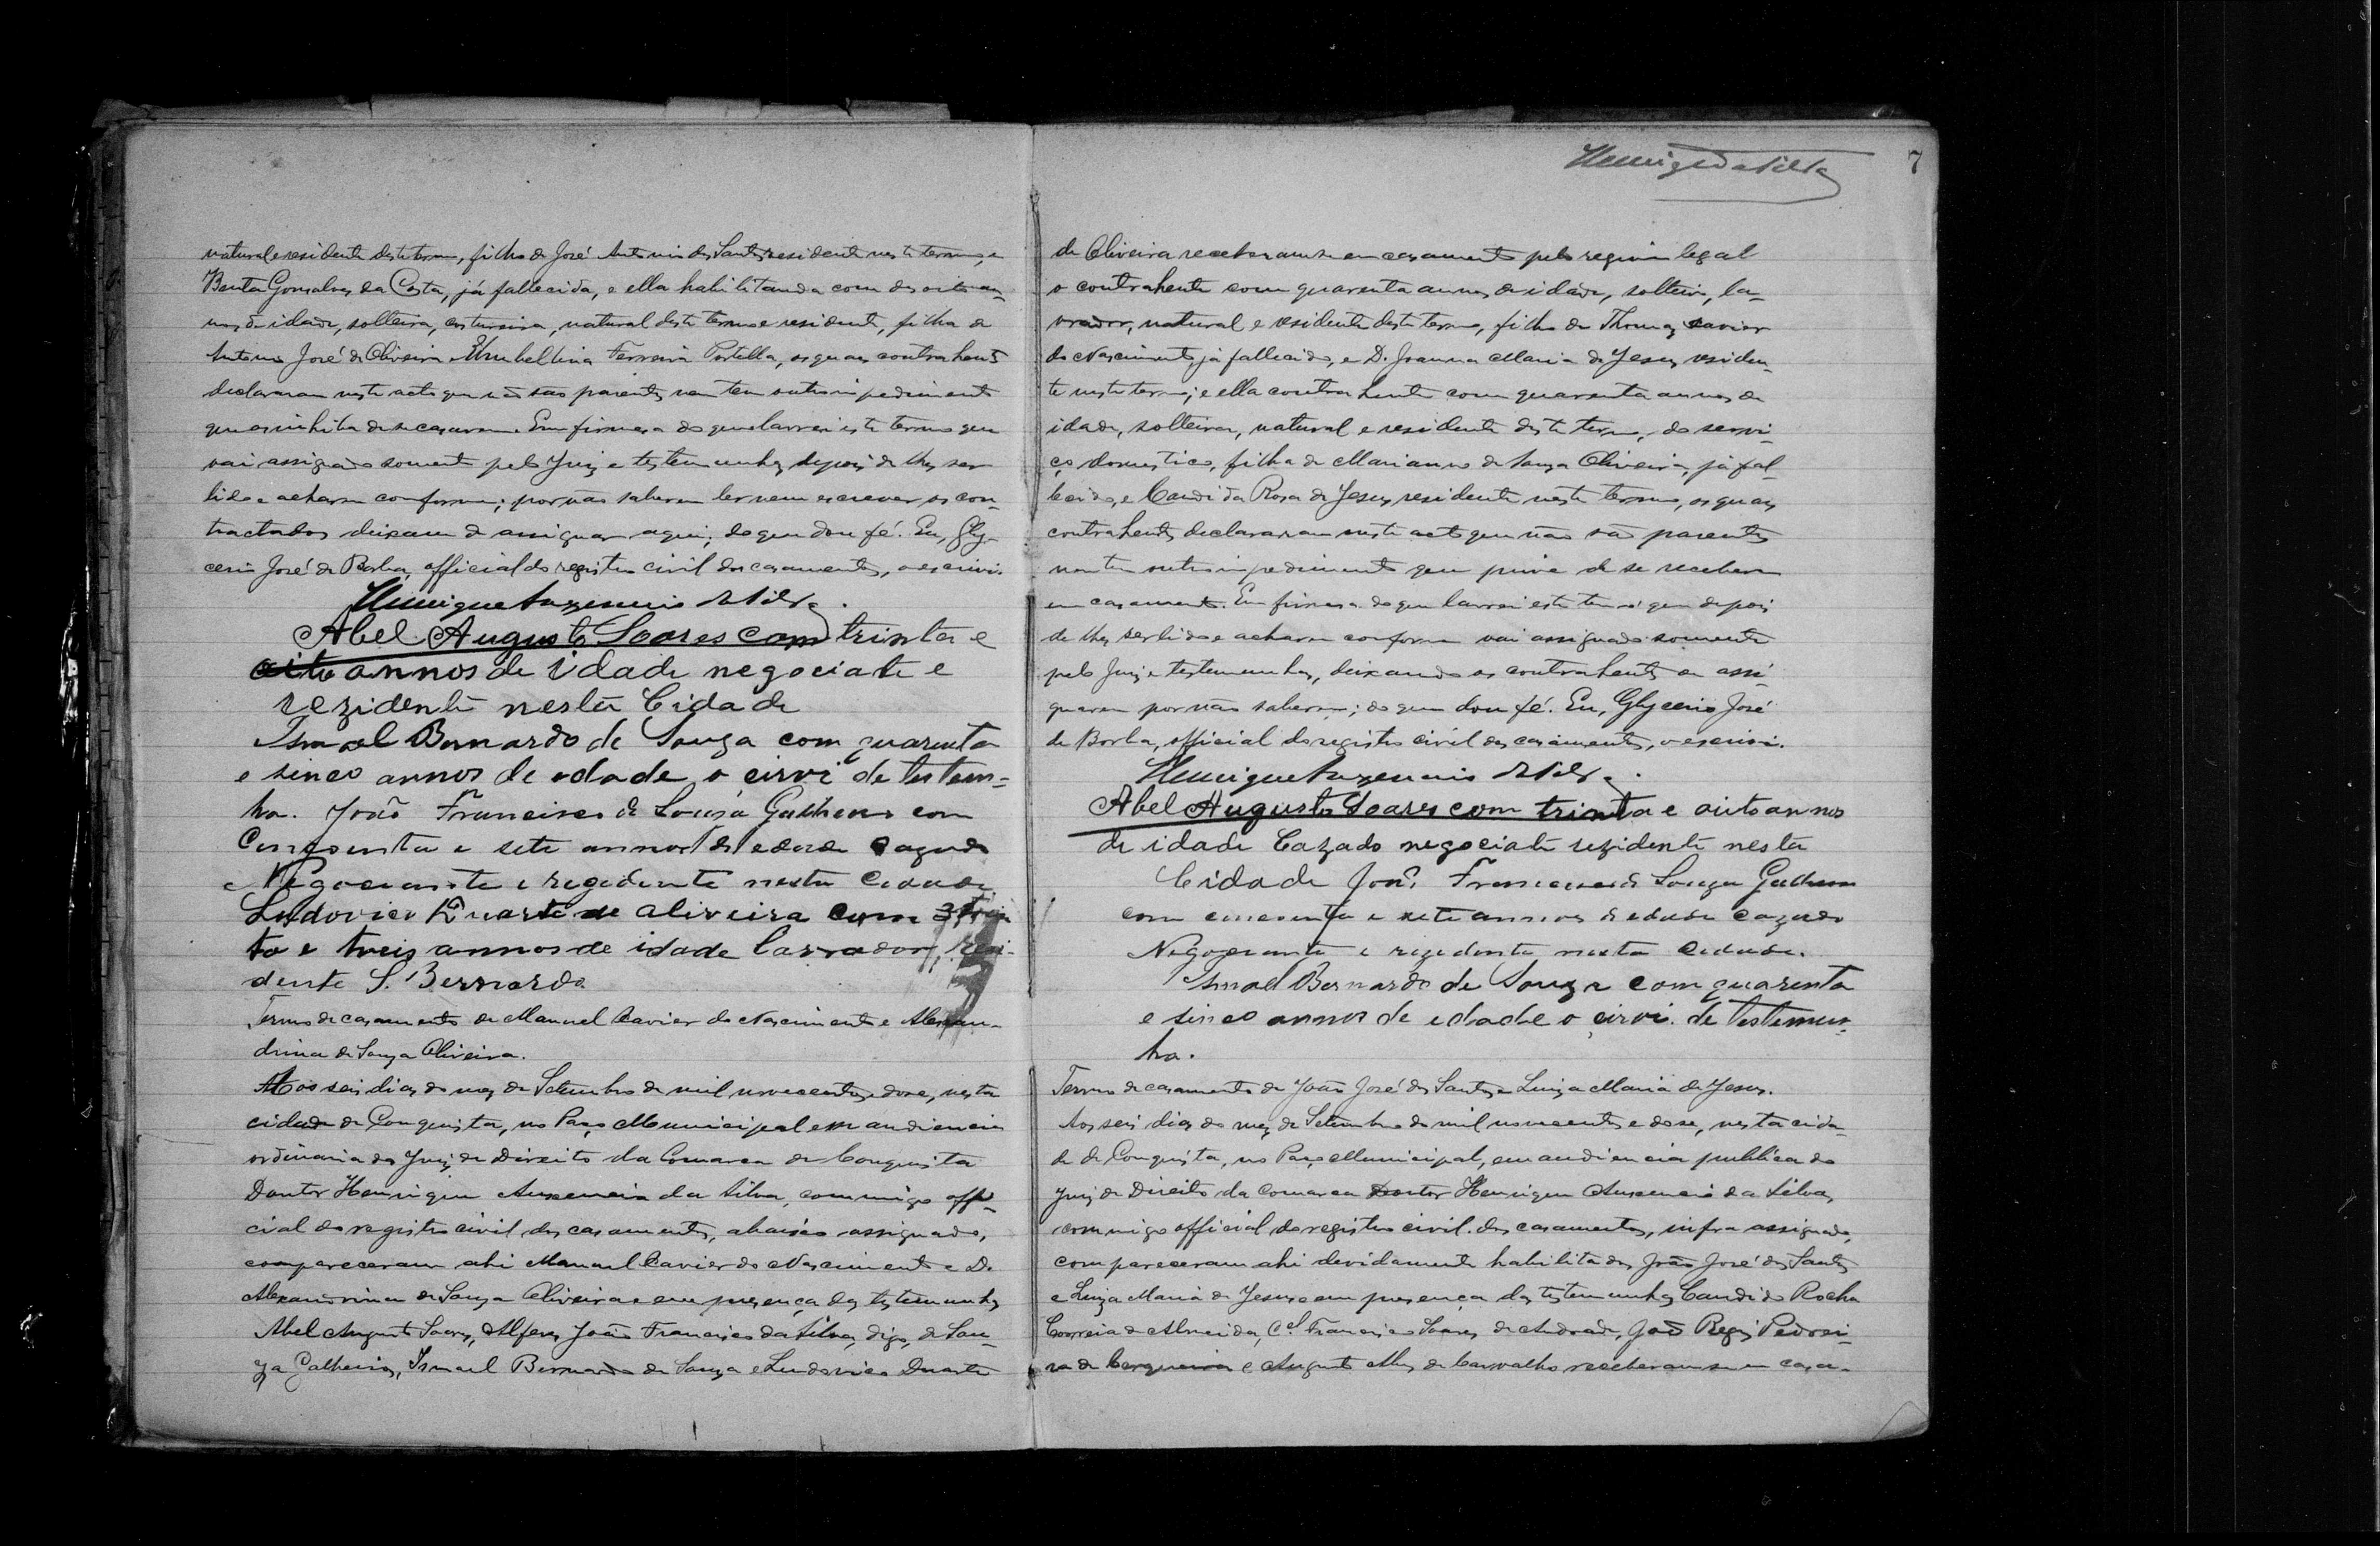 natural e residente deste termo, filho de José Antonio dos Santos residente neste termo, e
Benta Gonsalves da Costa, já fallecida, e ella habilitanda com desoito an-
nos de idade, solteira, costureira, natural deste termo e residente, filha de
Antonio José de Oliveira e Umbellina Ferreira Portella, os quaes contrahents
declararam neste acto que não são parentes nem tem outro impedimento
que os inhiba de se casarem. Em firmesa do que lavrei este termo que
vai assignado somente pelo Juiz e testemunhas, depois de lhes ser
lido e acharem conforme; por não saberem ler nem escrever os con-
tractados deixam de assignar aqui; do que dou fé. Eu, Gly-
cerio José de Borba, official do registro civil dos casamentos, o escrivi.
Henrique Auxencio da Silva.
Abel Augusto Soares com trinta e
oito annos de idade negociate e
rezidente nesta Cidade
Ismael Bernardo de Souza com quarenta
e sinco annos de edade, o cirvi de testem-
ha. João Francisco de Souza Gulheno com
Cincoenta e sete annos de edade cazado
Negociante e regedente nesta Cidade.
Ludovico Duarte de Oliveira com trin
ta e treis annos de idade lavrador, resi-
dente S. Bernardo
Termo de casamento de Manuel Xavier do Nascimento e Alexan-
drina de Souza Oliveira.
Aos seis dias do mez de Setembro de mil novecentos e dose, nesta
cidade de Conquista, no Paço Municipal em audiencia
ordinaria do Juiz de Direito da Comarca de Conquista
Doutor Henrique Auxencio da Silva, commigo offi-
cial do registro civil dos casamentos, abaixo assignado,
compareceram ahi Manuel Xavier do Nascimento e D.
Alexandrina de Souza Oliveira e em presença das testemunhas
Abel Augusto Soares, Alferes João Francisco da Silva, digo, de Sou-
za Galheiros, Ismael Bernardo de Souza e Ludovico Duarte
Henrique da Silva
7
de Oliveira receberam-se em casamento pelo regimen legal
o contrahente com quarenta annos de idade, solteiro, la-
vrador, natural e residente deste termo, filho de Thomaz Xavier
do Nascimento já fallecido, e D. Joanna Maria de Jesus, residen-
te neste termo; e ella contrahente com quarenta annos de
idade, solteira, natural e residente deste termo, do servi-
ço domestico, filha de Marianno de Souza Oliveira, já fal-
lecido, e Candida Rosa de Jesus, residente neste termo, os quaes
contrahentes declararam neste acto que não são parentes
nem tem outro impedimento que prive de se receberem
em casamento. Em firmesa do que lavrei este termo que depois
de lhes ser lido e acharem conforme vai assignado somente
pelo Juiz e testemunhas, deixando os contrahentes de assi-
gnarem por não saberem; do que dou fé. Eu, Glycerio José
de Borba, official do registro civil dos casamentos, o escrivi.
Henrique Auxencio da Silva.
Abel Augusto Soares com trinta e oito annos
de idade Cazado negociate rezidente nesta
Cidade João Francisco de Souza Gulheno
com cincoenta e sete annos de edade cazado
Negociante e rezedente nesta Cedade.
Ismael Bernardo de Souza com quarenta
e sinco annos de edade o cirvi de testemun-
ha.
Termo de casamento de João José dos Santos e Luiza Maria de Jesus.
Aos seis dias do mez de Setembro de mil novecentos e dose, nesta cida-
de de Conquista, no Paço Municipal, em audiencia publica do
Juiz de Direito da Comarca Doutor Henrique Auxencio da Silva,
commigo official do registro civil dos casamentos, infra assignado,
compareceram ahi devidamente habilitados João José dos Santos
e Luiza Maria de Jesus e em presença das testemunhas Candido Rocha
Correia de Almeida, Cel. Francisco Soares de Andrade, João Regis Pedrei-
ra de Cerqueira e Augusto Alves de Carvalho receberam-se em casa-